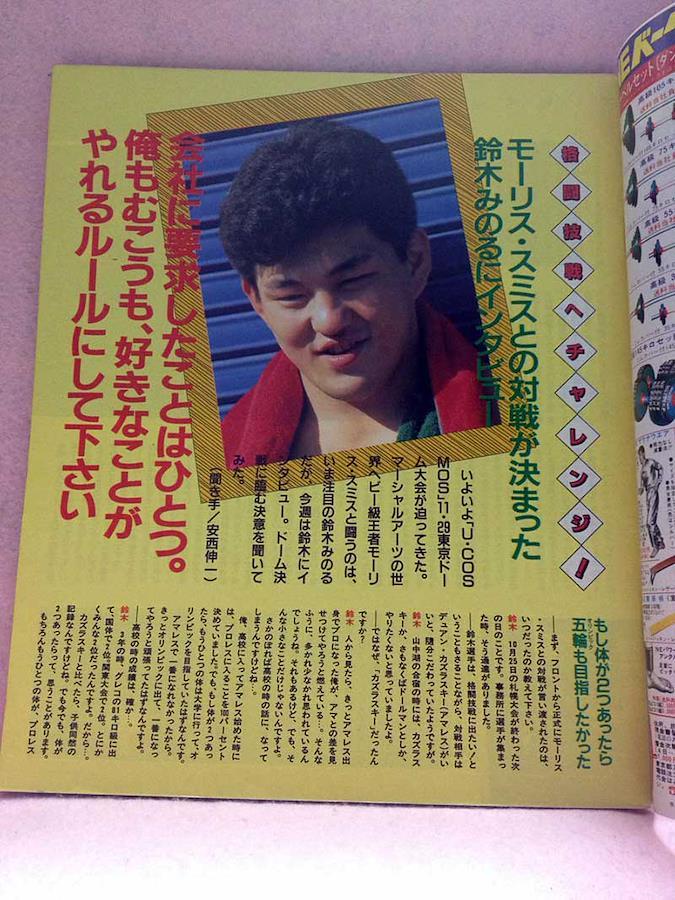 格闘技戦へチャレンジ!
モーリス・スミスとの対戦が決まった
鈴木みのるにインタビュー
会社に要求したことはひとつ。
俺もむこうも、好きなことが
やれるルールにして下さい
いよいよ『U・COS
MOS』11・29東京ドー
ム大会が迫ってきた。
マーシャルアーツの世
界ヘビー級王者モーリ
ス・スミスと闘うのは、
いま注目の鈴木みのる
だが、今週は鈴木にイ
ンタビュー。ドーム決
戦に臨む決意を聞いて
みた。
(聞き手/安西伸一)
もし体が2つあったら
五輪も目指したかった
オリンピック
——まず、フロントから正式にモーリ
ス・スミスとの対戦が言い渡されたのは、
いつだったのか教えて下さい。
鈴木 10月25日の札幌大会が終わった次
の日のことです。事務所に選手が集まっ
た時、そう通達がありました。
——鈴木選手は、格闘技戦に出たい!と
いうこともさることながら、対戦相手は
デュアン・カズラスキー(アマレス)がい
いと、随分こだわっていたようですが。
鈴木 山中湖の合宿の時には、カズラス
キーか、さもなくばドールマンとしか、
やりたくないと思っていましたよ。
——ではなぜ、“カズラスキー”だったん
ですか?
鈴木 人から見たら、きっとアマレス出
身でプロになった俺が、アマとの差を見
せつけてやろうと燃えている…、そんな
ふうに、少なからず思われているん
でしょうね。それもあるけど、でも、そ
んな小さなことだけじゃないんです。
さかのぼれば高校の時の話に、なって
しまうんですけどね…。
俺、高校に入ってアマレス始めた時に
は、プロレスに入ることを100パーセント
決めていました。でも、もし体が2つあっ
たら、もうひとつの体は大学に行って、オ
リンピックを目指していたはずなんです。
アマレスで一番になれなかったから。
きっとオリンピックに出て、一番になっ
てやろうと頑張ってたはずなんですよ。
——高校の時の成績は、確か…。
鈴木 3年の時、グレコの81キロ級に出
て、国体で2位。関東大会で2位。とにか
くみんな2位だったんですよ。だから…。
カズラスキーと比べたら、子供同然の
記録なんですけどね。でも今でも、体が
2つあったらって、思うことがあります。
もちろんもうひとつの体が、プロレス
高級105キ
高級 75キ
高級 55